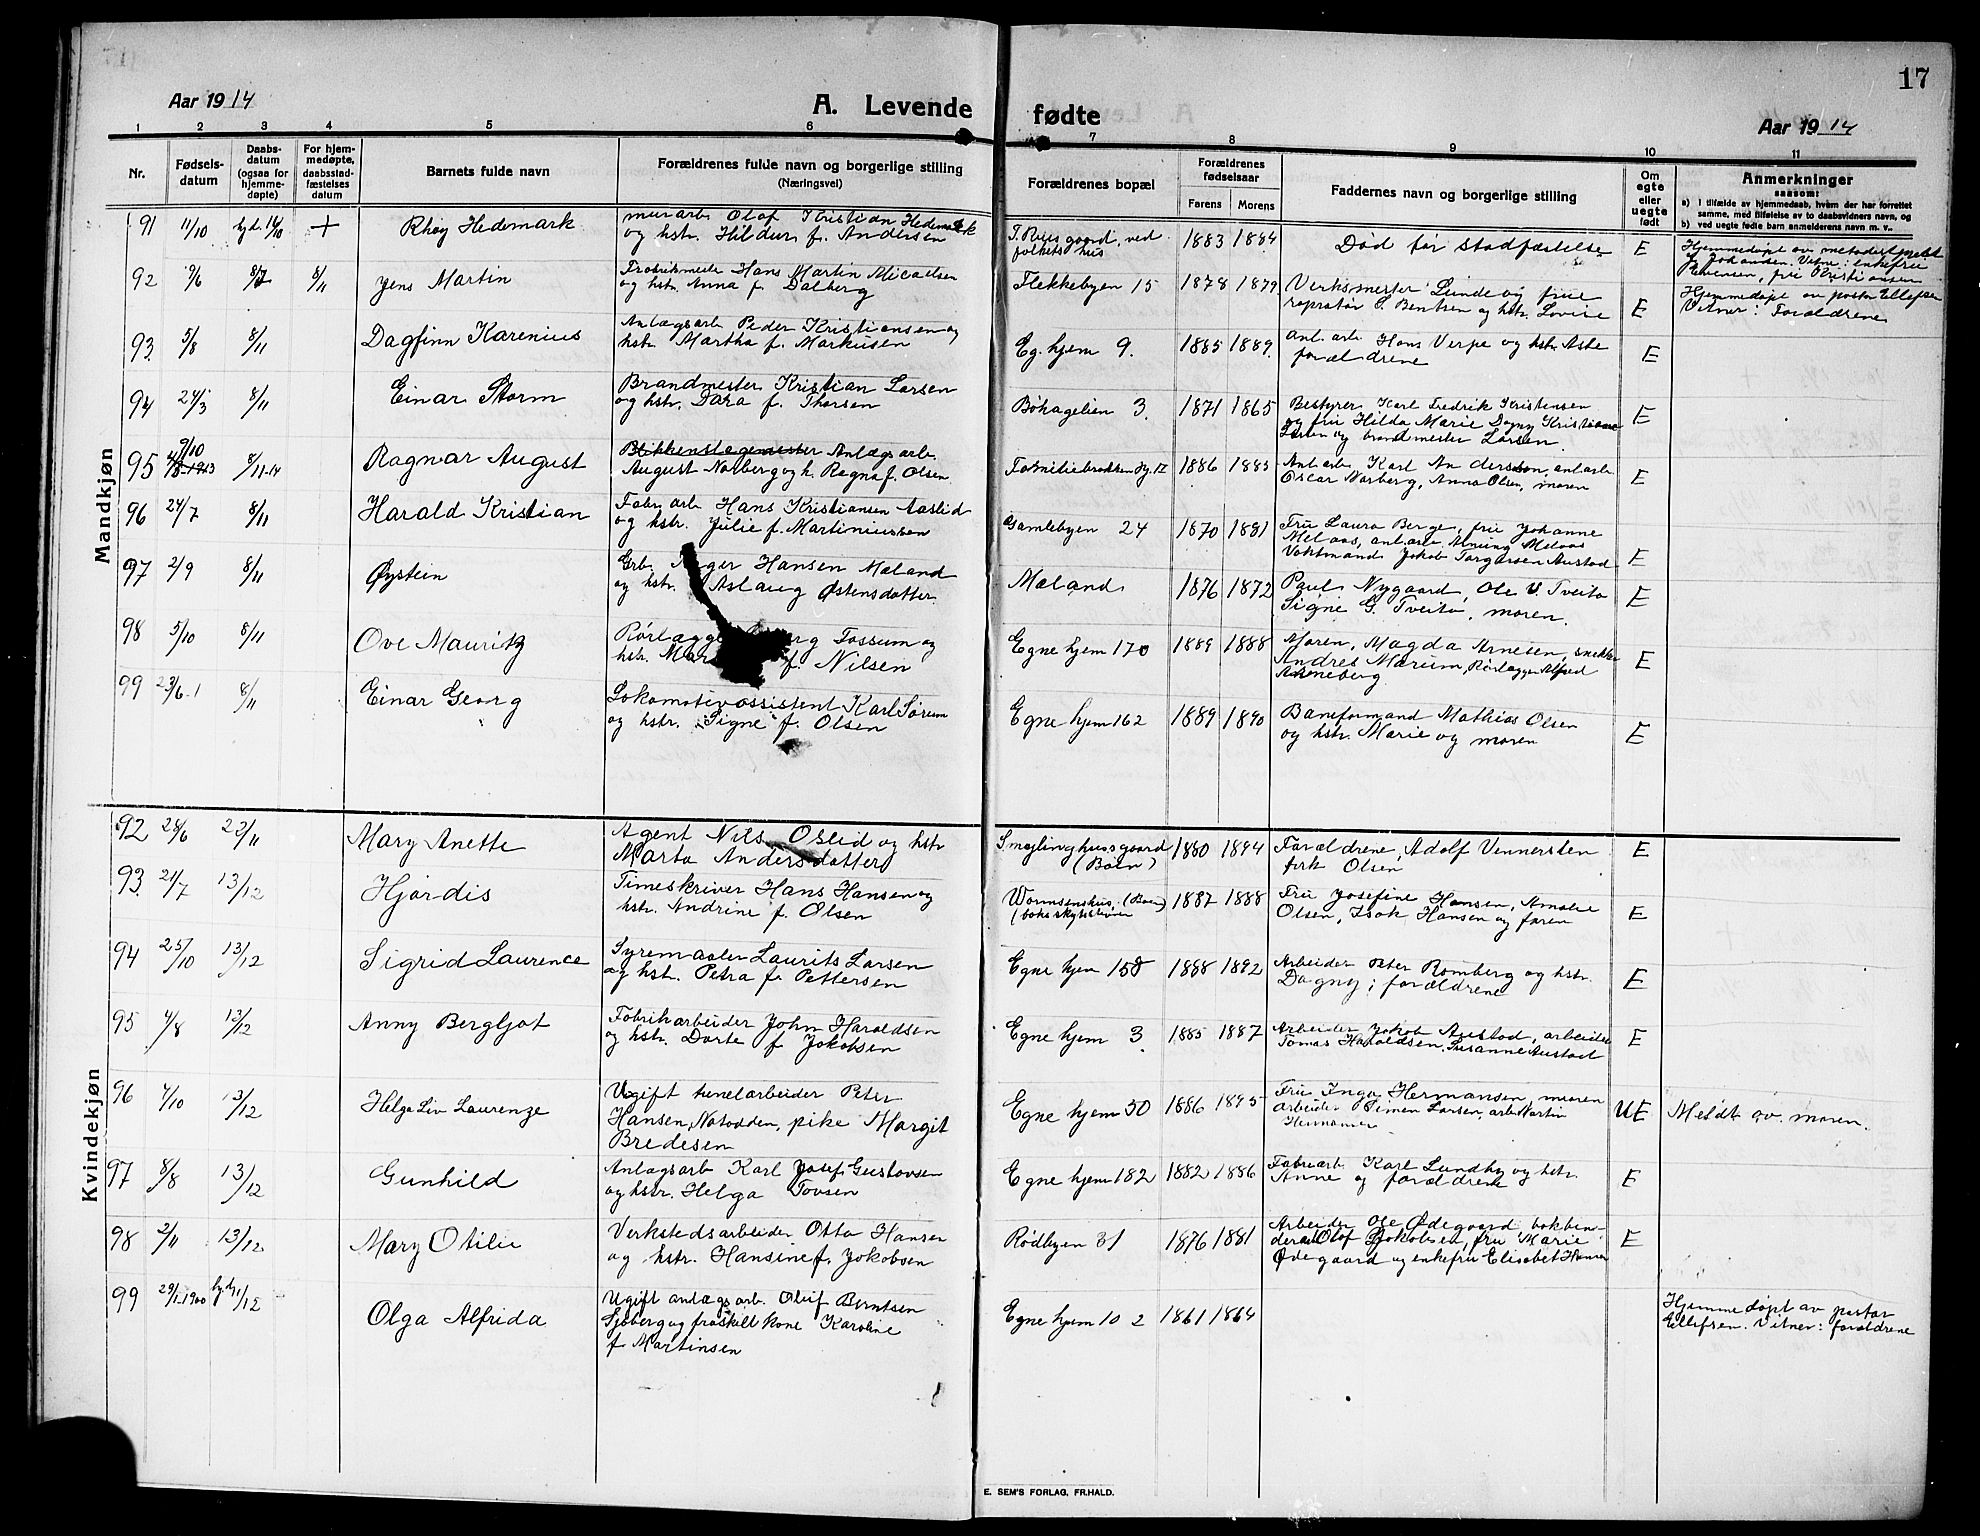 17
Aar 1914
A. Levende fødte
Aar 1914
1 2 3 4 5 6 7 8 9 10 11
Nr.
Fødsels-
datum
Daabs-
datum
(ogsaa for
hjemme-
døpte)
For hjem-
medøpte,
daabsstad-
fæstelses
datum
Barnets fulde navn
Forældrenes fulde navn og borgerlige stilling
(Næringsvei)
Forældrenes bopæl
Forældrenes
fødselsaar
Farens Morens
Faddernes navn og borgerlige stilling
Om
egte
eller
uegte
født
Anmerkninger
saasom:
a) I tilfælde av hjemmedaab, hvem der har forrettet
samme, med tilføielse av to daabsvidners navn, og
b) ved uegte fødte barn anmelderens navn m. v.
Mandkjøn
91 11/10 hj.d. 14/10 + Rhoy Hedemark
murarb. Olaf Kristian Hedemark
og hstr. Hildur f. Andersen
ved
folkets hus
1883 1884 Død før stadfæstelse E
92 9/6 8/7 8/11 Jens Martin
Hans Martin Micaelsen
og hstr. Anna f. Dalberg
Flekkebyen 15 1878 1879
Verksmester Lunde og frue
S. Bentsen og hstr. Lovise E
Hjemmedøpt av pastor Ellefsen
Vitner: Forældrene
93 5/8 8/11 Dagfinn Karenius
Anlægsarb. Peder Kristiansen og
hstr. Martha f. Markusen
Eg. hjem 9. 1885 1889
anl. arb. Hans Verpe og hstr. Aste
forældrene E
94 24/3 8/11 Einar Storm
Brandmester Kristian Larsen
og hstr. Dora f. Thorsen
Bøhagelien 3. 1871 1865
Bestyrer Karl Fredrik Kristensen
og fru Hilda Marie Dagny Kristiane
Larsen og brandmester Larsen E
95 9/10 1913 8/11-14 Ragnar August
Blikkenslagemester Anlægsarb.
August Norberg og h. Ragna f. Olsen
Familiebrakken 1886 1885
Anl. arb. Karl Andersson, anl. arb.
Oscar Norberg, Anna Olsen, moren E
96 24/7 8/11 Harald Kristian
Fabr. arb. Hans Kristiansen Aaslid
og hstr. Julie f. Martiniussen
Gamlebyen 24 1870 1881
Fru Laura Berge, fru Johanne
Melaas, anl. arb. Melaas
Vaktmand Jakob Torgersen Austad E
97 2/9 8/11 Øystein
Hansen Mæland
og hstr. Aslaug Østensdatter
Mæland 1876 1872
Paul Nygaard, Ole V. Tveito
Signe G. Tveito, moren. E
98 5/10 8/11 Ove Mauritz
Fossum og
hstr. f. Nilsen
Egne hjem 170 1889 1888
Moren, Magda Arnesen, snekker
Andres Mærum, Rørlægger Alfred
Arneberg E
99 23/6 8/11 Einar Georg
Lokomotivassistent Karl Sørum
og hstr. Signe f. Olsen
Egne hjem 162 1889 1890
Baneformand Mathias Olsen
og hstr. Marie og moren E
Kvindekjøn
92 28/6 22/11 Mary Anette
Agent Nils Oslid og hstr
Marta Andersdatter
(Bøen) 1880 1894
Forældrene, Adolf Vennersten
Olsen E
93 21/7 13/12 Hjørdis
Timeskriver Hans Hansen og
hstr. Andrine f. Olsen
1887 1888
Fru Josefine Hansen, Amalie
Olsen, Isak Hansen og faren E
94 25/10 13/12 Sigrid Laurence
Syremaaler Laurits Larsen
og hst. Petra f. Pettersen
Egne hjem 158 1888 1892
Arbeider Peter Romberg og hstr.
Dagny; forældrene E
95 4/8 13/12 Anny Bergljot
Fabrikarbeider John Haraldsen
og hstr. Dorte f. Jakobsen
Egne hjem 3 1885 1887
Arbeider Jakob Austad, arbeider
Tomas Haraldsen, Susanne Austad E
96 4/10 13/12 Helga Liv Laurenze
Ugift tunelarbeider Peter
Hansen, Notodden, pike Margit
Bredesen
Egne hjem 50 1886 1895
Fru Inga Hermansen, moren
arbeider Simen Larsen, arb. Martin
Hermansen UE Meldt av moren.
97 8/8 13/12 Gunhild
Anlægsarb. Karl Josef Gustavsen
og hstr. Helga Tovsen
Egne hjem 182 1882 1886
Fabr. arb. Karl Lundby og hstr.
Anne og forældrene E
98 2/11 13/12 Mary Otilie
Verkstedsarbeider Otto Hansen
og hstr. Hansine f. Jakobsen
Rødbyen 31 1876 1881
Arbeider Ole Ødegaard, bokbin-
der Olof Jakobsen, fru Marie
Ødegaard og enkefru Elisabet Hansen E
99 29/1-1900 hj.d. 1/12 Olga Alfrida
Ugift anlægsarb. Oluf Berntsen
Sjøberg og fraskilt kone Karoline
f. Martinsen
Egne hjem 102 1861 1864
Hjemmedøpt av pastor
Ellefsen. Vitner: forældrene
E. SEM'S FORLAG, FR.HALD.